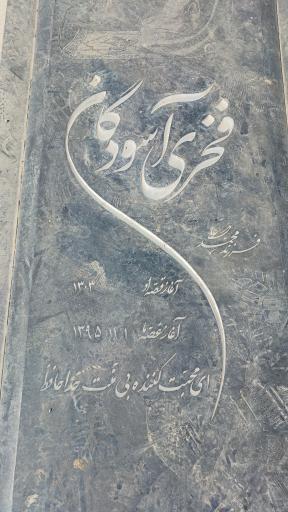 فخری آسودگان
فرزند محمد
آغاز قصه او ۱۳۰۳
آغاز غصه ما ۱۳۹۵ ۱۱ ۱
ای محبت کننده بی منت خداحافظ